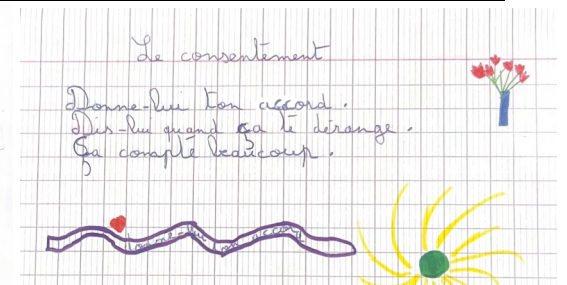 Le consentement
Donne-lui ton accord.
Dis-lui quand ça te dérange.
Ça compte beaucoup.
accord